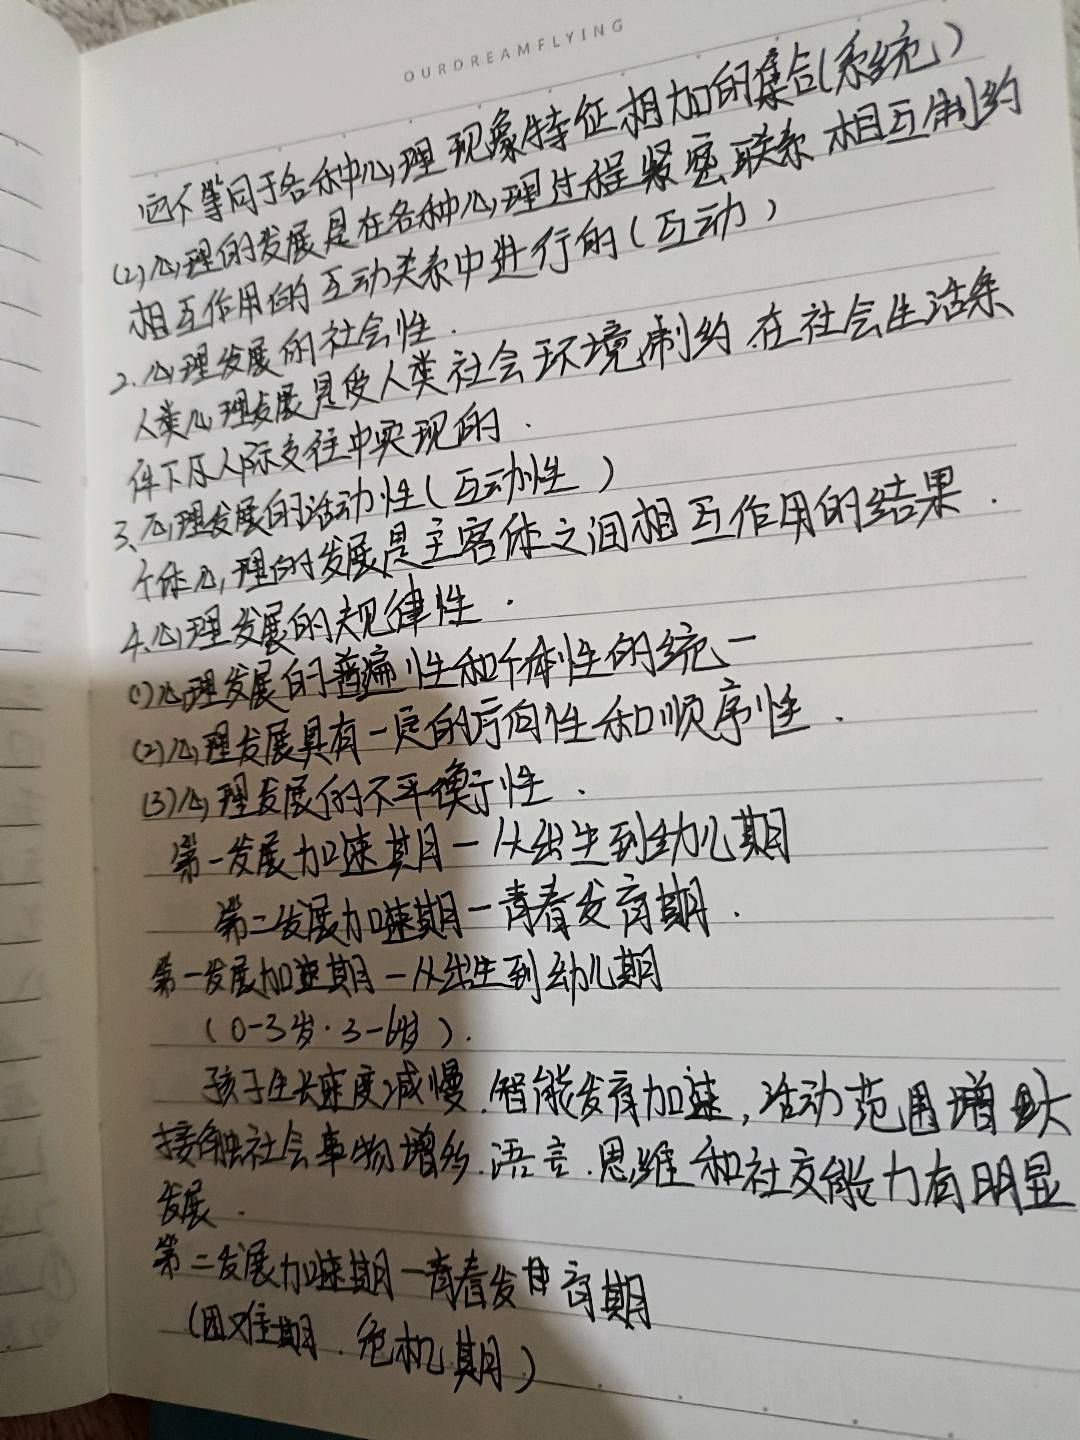 OURDREAMFLYING
它不等同于各种心理现象特征相加的集合(系统)
(2)心理的发展是在各种心理过程紧密联系 相互制约
相互作用的互动关系中进行的(互动)
2.心理发展的社会性.
人类心理发展是受人类社会环境制约.在社会生活条
件下及人际交往中实现的.
3、心理发展的活动性(互动性)
个体心理的发展是主客体之间相互作用的结果.
4.心理发展的规律性.
(1)心理发展的普遍性和个体性的统一
(2)心理发展具有一定的方向性和顺序性.
(3)心理发展的不平衡性.
第一发展加速期—从出生到幼儿期
第二发展加速期—青春发育期.
第一发展加速期—从出生到幼儿期
(0-3岁·3-6岁).
孩子生长速度减慢.智能发育加速,活动范围增大
接触社会事物增多.语言.思维和社交能力有明显
发展.
第二发展加速期—青春发育期
(困难期.危机期)